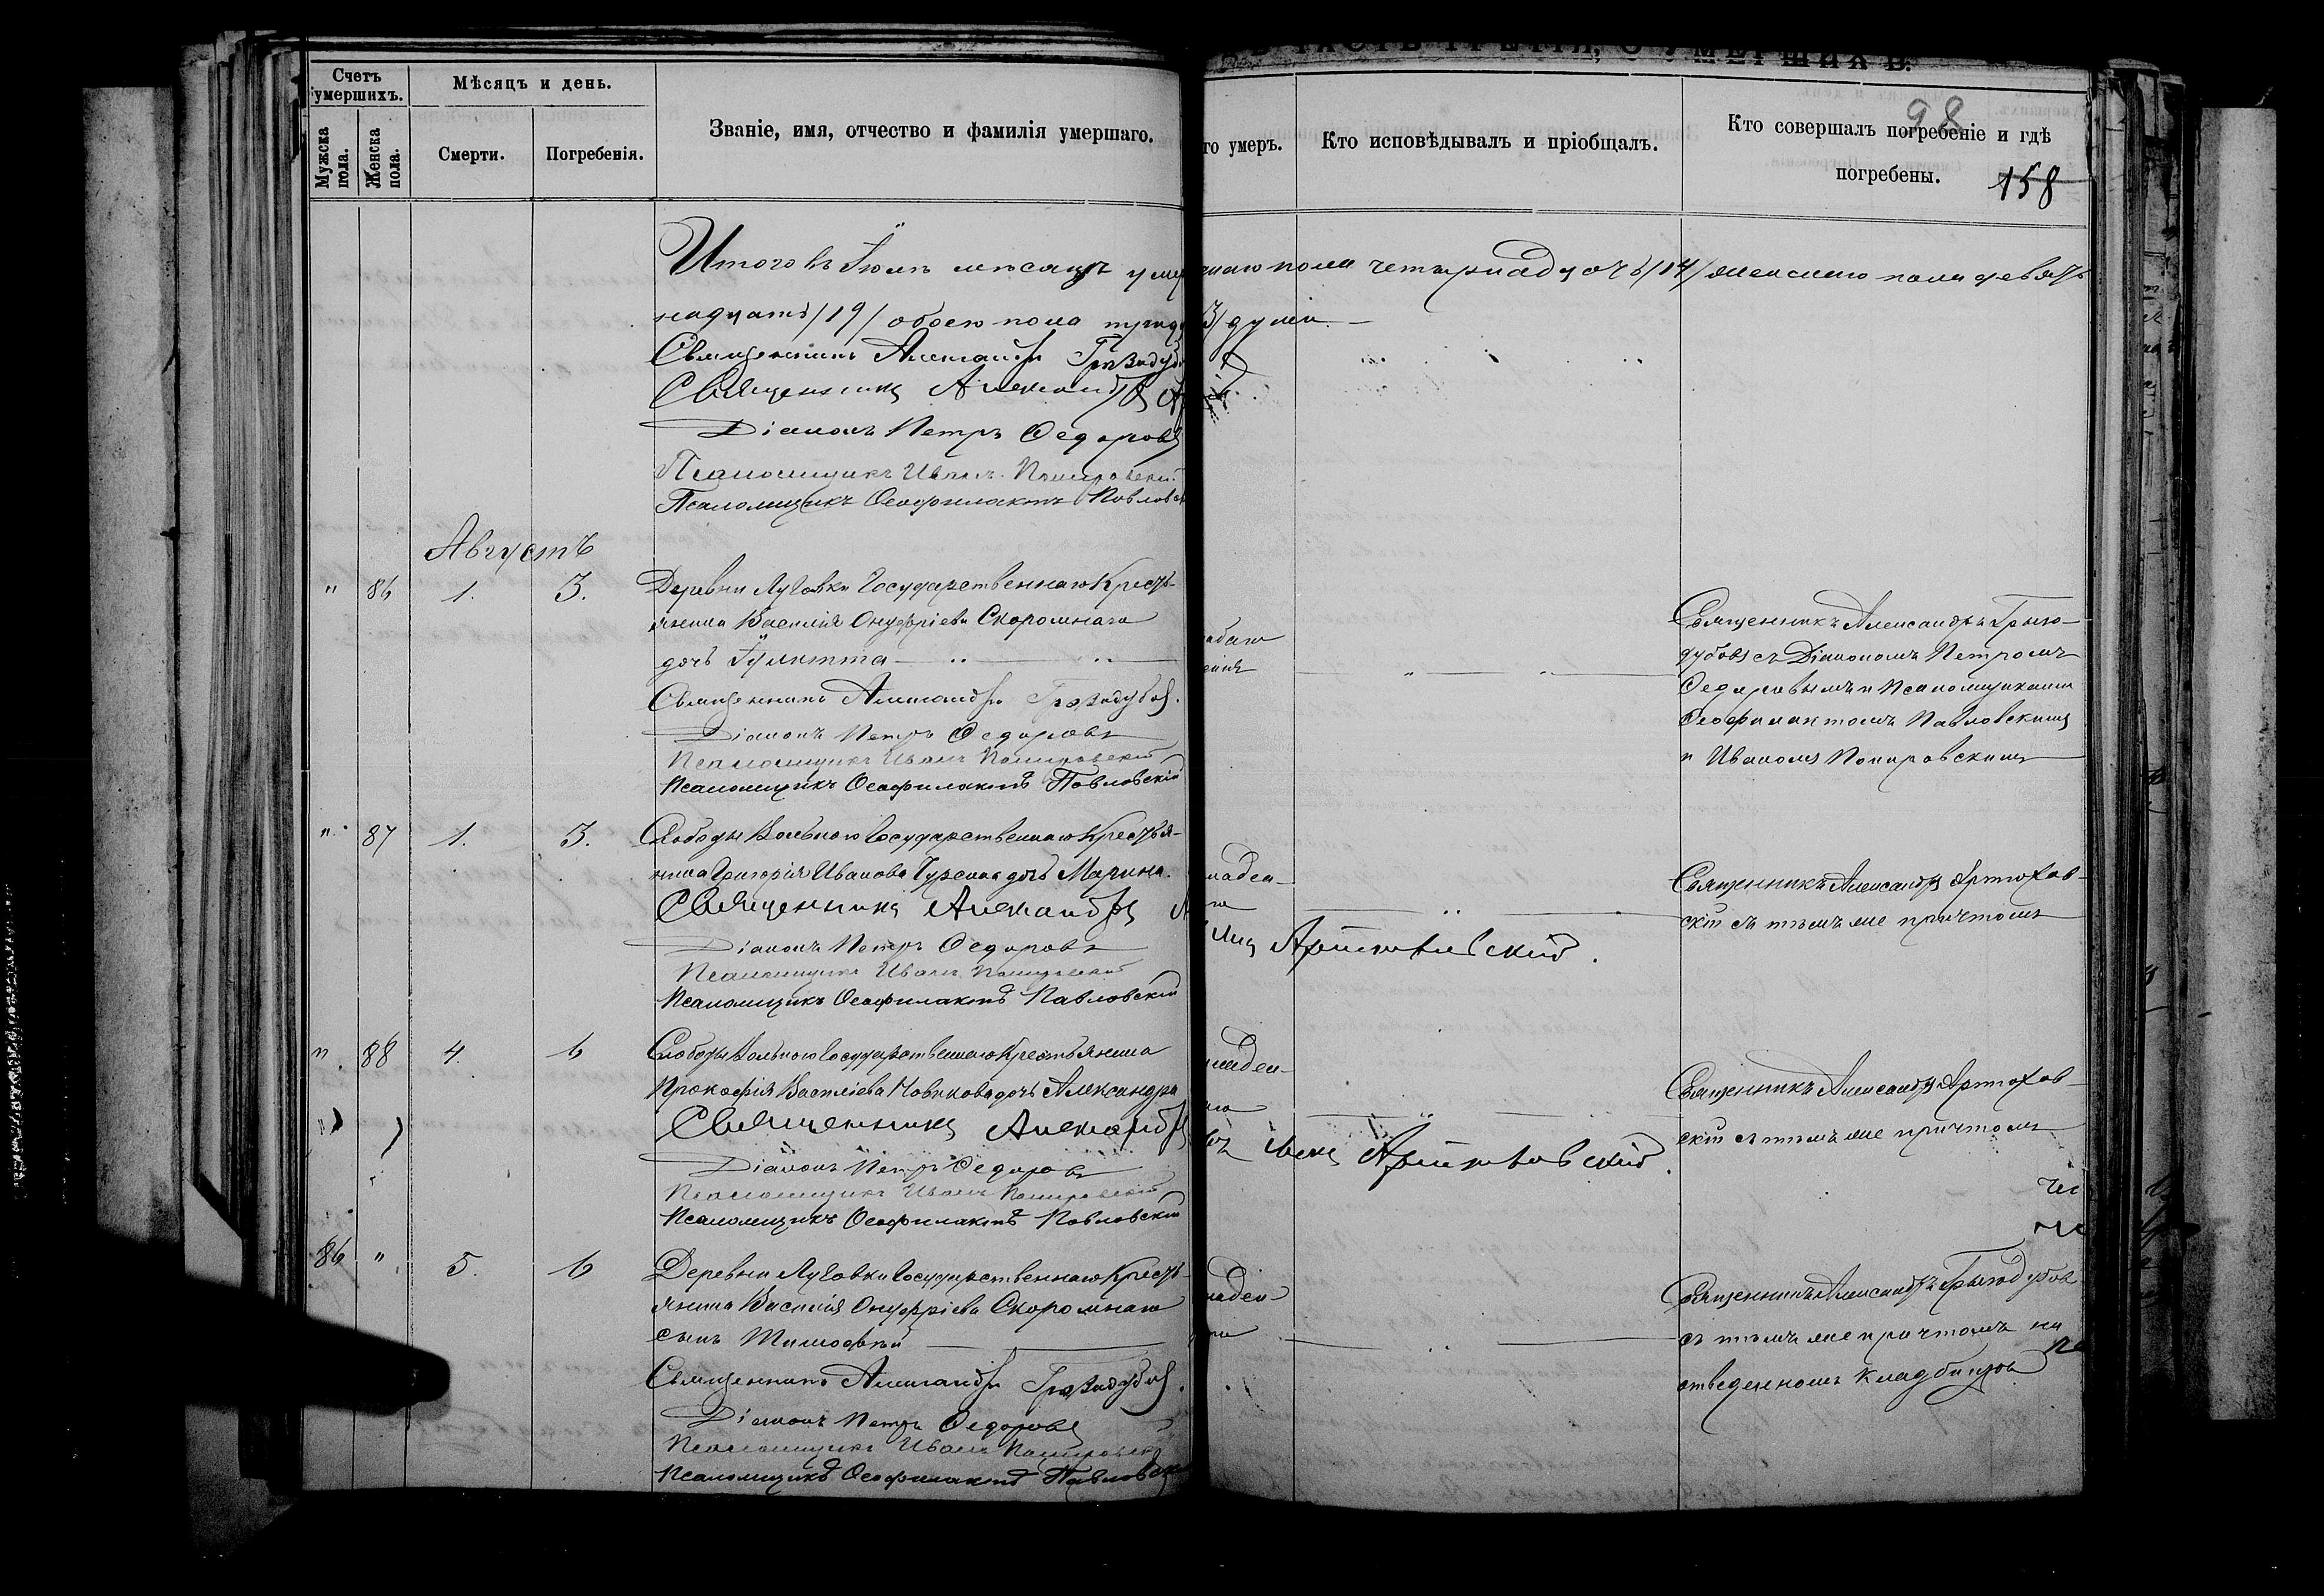 ЧАСТЬ ТРЕТІЯ, О УМЕРШИХЪ.
Счетъ умершихъ.
Мѣсяцъ и день.
Званіе, имя, отчество и фамилія умершаго.
го умеръ.
Кто исповѣдывалъ и пріобщалъ.
Кто совершалъ погребеніе и гдѣ
погребены.
98
158
Мужска пола.
Женска пола.
Смерти.
Погребенія.
Итого въ Іюлѣ мѣсяцѣ умер
надцать /19/ обоего пола тридц
Священникъ Александръ
Священникъ Александръ
Діаконъ Петръ Ѳедоровъ
Псаломщикъ Иванъ
Псаломщикъ Ѳеофилактъ Павловск
скаго пола четырнадцать /14/ женскаго пола девять
3/ души.
Августъ
" 86 1. 3.
Деревни Луговки Государственнаго Кресть-
янина Василія Онуфріева Скоромнаго
дочь Іулитта
Священникъ Александръ
Діаконъ Петръ Ѳедоровъ
Псаломщикъ Иванъ
Псаломщикъ Ѳеофилактъ Павловскій
Священникъ Александръ Грызо-
дубовъ съ Діакономъ Петромъ
Ѳедоровымъ и Псаломщиками
Ѳеофилактомъ Павловскимъ
и Иваномъ
" 87 1. 3.
Слободы Вольной Государственнаго Крестья-
нина Григорія Иванова дочь Марина.
Священникъ Александръ
Діаконъ Петръ Ѳедоровъ
Псаломщикъ Иванъ
Псаломщикъ Ѳеофилактъ Павловскій
младен-
Артюховскій.
Священникъ Александръ Артюхов-
скій съ тѣмъ же причтомъ
" 88 4. 6
Слободы Вольной Государственнаго Крестьянина
Прокофія Василіева Новикова дочь Александра
Священникъ Александръ
Діаконъ Петръ Ѳедоровъ
Псаломщикъ Иванъ
Псаломщикъ Ѳеофилактъ Павловскій
младен-
Артюховскій.
Священникъ Александръ Артюхов-
скій съ тѣмъ же причтомъ
86 " 5. 6
Деревни Луговки Государственнаго Кресть-
янина Василія Онуфріева Скоромнаго
сынъ Тимофей
Священникъ Александръ
Діаконъ Петръ Ѳедоровъ
Псаломщикъ Иванъ
Псаломщикъ Ѳеофилактъ Павловск
Священникъ Александръ Грызодубовъ
съ тѣмъ же причтомъ на
отведенномъ кладбищѣ